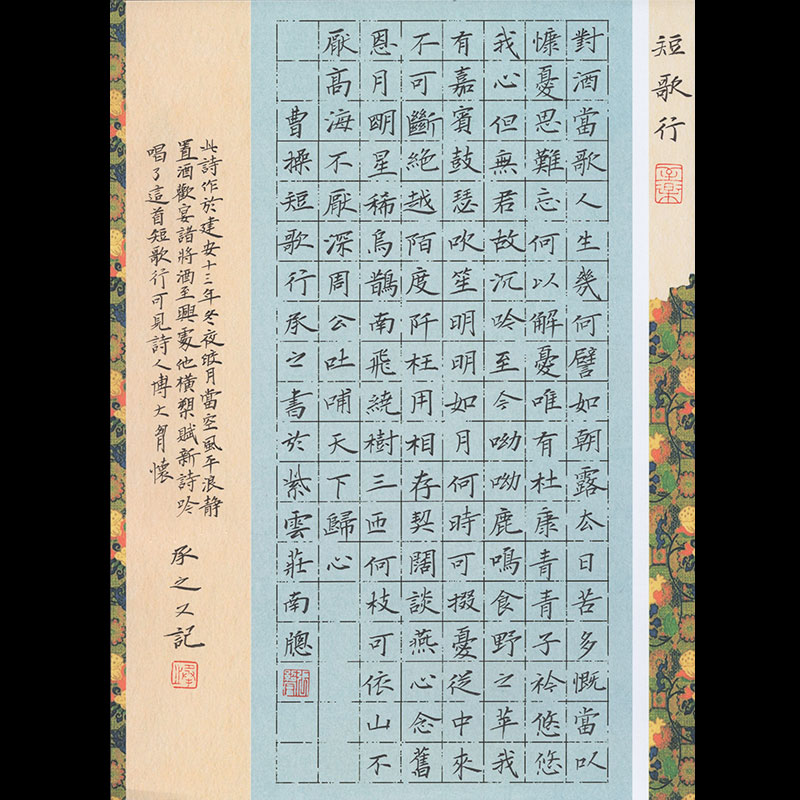 短歌行
對酒當歌人生幾何譬如朝露去日苦多慨當以
慷憂思難忘何以解憂唯有杜康青青子衿悠悠
我心但無君故沉吟至今呦呦鹿鳴食野之苹我
有嘉賓鼓瑟吹笙明明如月何時可掇憂從中來
不可斷絕越陌度阡枉用相存契闊談燕心念舊
恩月明星稀烏鵲南飛繞樹三匝何枝可依山不
厭高海不厭深周公吐哺天下歸心
曹操短歌行承之書於紫雲莊南牕
此詩作於建安十三年冬夜皎月當空風平浪静
置酒歡宴諸將酒至興處他橫槊賦新詩吟
唱了這首短歌行可見詩人博大胷懷
承之又記